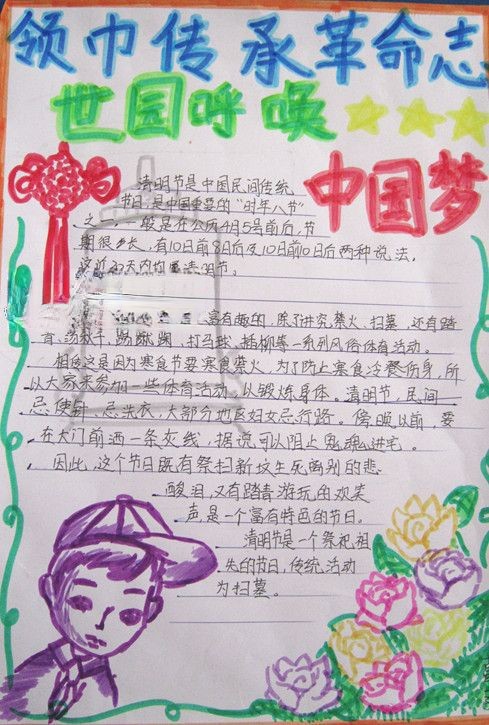 领巾传承革命志
世园呼唤
中国梦
清明节是中国民间传统
节日,是中国重要的“时年八节”
之一,一般是在公历4月5号前后,节
期很长,有10日前8日后及10日前10日后两种说法,
这近20天内均属清明节。
富有趣的,除了讲究禁火、扫墓,还有踏
青、荡秋千、踢蹴鞠、打马球、插柳等一系列风俗体育活动。
相传这是因为寒食节要寒食禁火,为了防止寒食冷餐伤身,所
以大家来参加一些体育活动,以锻炼身体。清明节,民间
忌使针,忌洗衣,大部分地区妇女忌行路。傍晚以前,要
在大门前洒一条灰线,据说可以阻止鬼魂进宅。
因此,这个节日既有祭扫新坟生死离别的悲
酸泪,又有踏青游玩的欢笑
声,是一个富有特色的节日。
清明节是一个祭祀祖
先的节日,传统活动
为扫墓。